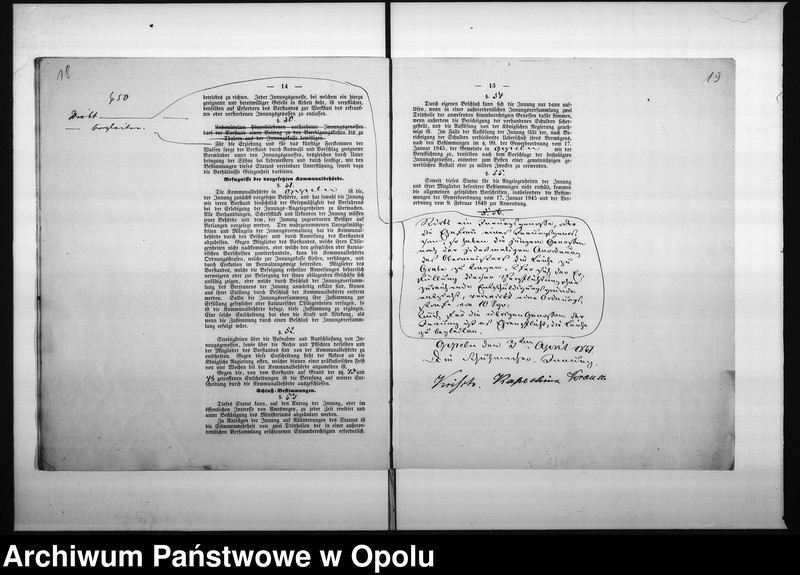 18
§50
— 14 —
betriebes zu richten. Jeder Innungsgenosse, bei welchem ein hierzu
geeigneter und bereitwilliger Geselle in Arbeit steht, ist verpflichtet,
denselben auf Erfordern des Vorstandes zur Werkstatt des erkrank-
ten oder verstorbenen Innungsgenossen zu entlassen.
§. 50
Unbemittelten Hinterbliebenen verstorbener Innungsgenossen
darf der Vorstand einen Beitrag zu den Beerdigungskosten bis zu
Thalern aus der Innungskasse bewilligen.
Für die Erziehung und für das künftige Fortkommen der
Waisen sorgt der Vorstand durch Auswahl und Vorschlag geeigneter
Vormünder unter den Innungsgenossen, desgleichen durch Unter-
bringung der Söhne bei Lehrmeistern und durch sonstige, mit den
Bestimmungen dieses Statuts vereinbare Unterstützung, soweit dazu
die Verhältnisse Gelegenheit darbieten.
Befugnisse der vorgesetzten Kommunalbehörde.
§. 51.
Die Kommunalbehörde in Oppeln ist die,
der Innung zunächst vorgesetzte Behörde, und hat sowohl die Innung
wie deren Vorstand hinsichtlich der Gesetzmäßigkeit des Verfahrens
bei der Erledigung der Innungs-Angelegenheiten zu überwachen.
Alle Verhandlungen, Schriftstücke und Urkunden der Innung müssen
jener Behörde und dem, der Innung zugeordneten Beisitzer auf
Verlangen vorgelegt werden. Den wahrgenommenen Unregelmäßig-
keiten und Mängeln der Innungsverwaltung hat die Kommunal-
behörde durch den Beisitzer und durch Anweisung des Vorstandes
abzuhelfen. Gegen Mitglieder des Vorstandes, welche ihren Oblie-
genheiten nicht nachkommen, oder welche den gesetzlichen oder statuta-
rischen Vorschriften zuwiderhandeln, kann die Kommunalbehörde
Ordnungsstrafen, welche zur Innungskasse fließen, verhängen, und
durch Exekution im Verwaltungswege beitreiben. Mitglieder des
Vorstandes, welche die Befolgung ertheilter Anweisungen beharrlich
verweigern oder zur Besorgung der ihnen obliegenden Geschäfte sich
unfähig zeigen, oder welche durch Beschluß der Innungsversamm-
lung des Vertrauens der Innung unwürdig erklärt sind, können
aus ihrer Stellung durch Beschluß der Kommunalbehörde entfernt
werden. Sollte die Innungsversammlung ihre Zustimmung zur
Erfüllung gesetzlicher oder statutarischer Obliegenheiten versagen, so
ist die Kommunalbehörde befugt, diese Zustimmung zu ergänzen.
Eine solche Entscheidung hat eben die Kraft und Wirkung, als
wenn die Zustimmung durch einen Beschluß der Innungsversamm-
lung erfolgt wäre.
§. 52.
Streitigkeiten über die Aufnahme und Ausschließung von In-
nungsgenossen, sowie über die Rechte und Pflichten derselben und
der Mitglieder des Vorstandes sind von der Kommunalbehörde zu
entscheiden. Gegen diese Entscheidung steht der Rekurs an die
Königliche Regierung offen, welcher binnen einer präklusivischen Frist
von vier Wochen bei der Kommunalbehörde anzumelden ist.
Gegen die, von dem Vorstande auf Grund der §§.
45 getroffenen Entscheidungen ist die Berufung auf weitere Ent-
scheidung durch die Kommunalbehörde ausgeschlossen.
Schluß-Bestimmungen.
§. 53
Dieses Statut kann, auf den Antrag der Innung, oder im
öffentlichen Interesse von Amtswegen, zu jeder Zeit revidirt und
unter Bestätigung des Ministeriums abgeändert werden.
Zu Anträgen der Innung auf Abänderungen des Statuts ist
die Stimmenmehrheit von zwei Drittheilen der in einer außeror-
dentlichen Versammlung erschienenen Stimmberechtigten erforderlich.
19
— 15 —
§. 54
Durch eigenen Beschluß kann sich die Innung nur dann auf-
lösen, wenn in einer außerordentlichen Innungsversammlung zwei
Drittheile der anwesenden stimmberechtigten Genossen dafür stimmen,
wenn außerdem die Berichtigung der vorhandenen Schulden sicher-
gestellt, und die Auflösung von der Königlichen Regierung geneh-
migt ist. Im Falle der Auflösung der Innung fällt der, nach Be-
richtigung der Schulden, verbleibende Ueberschuß ihres Vermögens,
nach den Bestimmungen in §. 99. der Gewerbeordnung vom 17.
Januar 1845, der Gemeinde in Oppeln mit der
Verpflichtung zu, denselben nach dem Vorschlage der betheiligten
Innungsgenossen, entweder zum Besten einer gemeinnützigen ge-
werblichen Anstalt oder zu milden Zwecken zu verwenden.
§. 55.
Soweit dieses Statut für die Angelegenheiten der Innung
und ihrer Mitglieder besondere Bestimmungen nicht enthält, kommen
die allgemeinen gesetzlichen Vorschriften, insbesondere die Bestim-
mungen der Gewerbeordnung vom 17. Januar 1845 und der Ver-
ordnung vom 9. Februar 1849 zur Anwendung.
§. 56.
Stirbt ein Innungsgenosse, oder
die Ehefrau eines Innungsgenos-
Grabe zu tragen.
strafe von 10 Sgr.
Oppeln den April 1861
Die Schuhmacher-Innung.
Archiwum Państwowe w Opolu